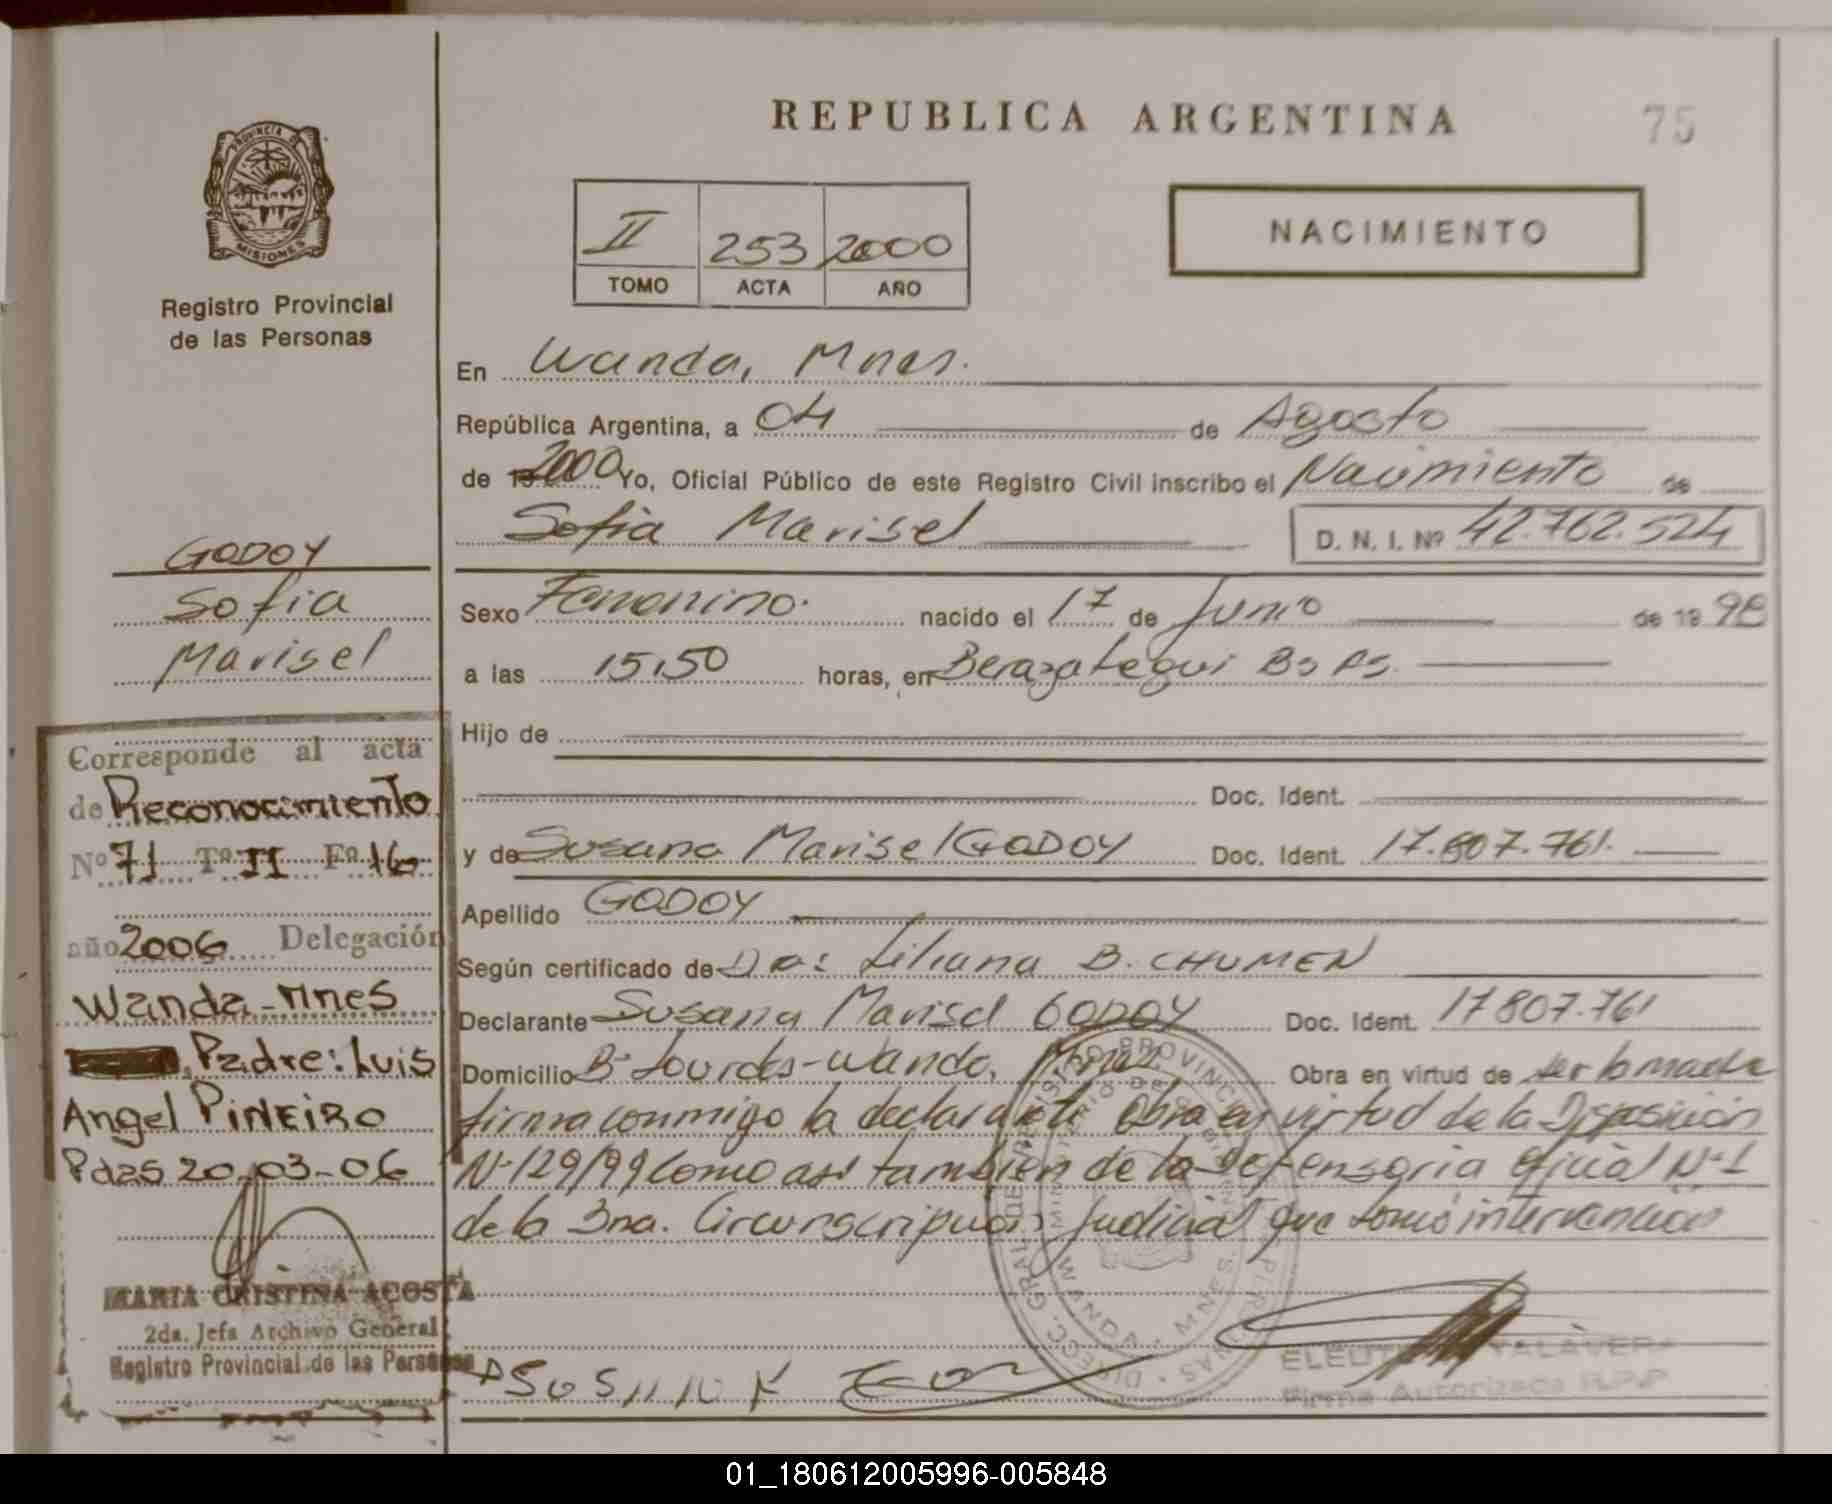 REPUBLICA ARGENTINA
75
PROVINCIA DE
MISIONES
Registro Provincial
de las Personas
II 253 2000
TOMO ACTA AÑO
NACIMIENTO
En Wanda, Mnes.
República Argentina, a 04 de Agosto
de 2000 Yo, Oficial Público de este Registro Civil inscribo el Nacimiento de
Sofia Marisel D. N. I. Nº 42.762.524
GODOY
Sofia
Marisel
Sexo Femenino. nacido el 17 de Junio de 19 98
a las 15,50 horas, en Berazategui Bs As.
Hijo de
Doc. Ident.
y de Susana Marisel GODOY Doc. Ident. 17.807.761.
Apellido GODOY
Según certificado de Dra: Liliana B. CHUMEN
Declarante Susana Marisel GODOY Doc. Ident. 17807.761
Domicilio Bº Lourdes-Wanda, Mnes. Obra en virtud de ser la madre
firma conmigo la declarante Obra en virtud de la Disposición
Nº 129/99 como asi tambien de la Defensoria Oficial Nº 1
de la 3ra. Circunscripción Judicial que tomó intervención
Corresponde al acta
de Reconocimiento
Nº 71 Tº II Fº 16
año 2006 Delegación
Wanda-Mnes
Padre: Luis
Angel PIÑEIRO
Pdas 20-03-06
MARIA CRISTINA ACOSTA
2da. Jefa Archivo General
Registro Provincial de las Personas
WANDA - MNES
TALAVERA
Firma Autorizada R.P.P
01_180612005996-005848